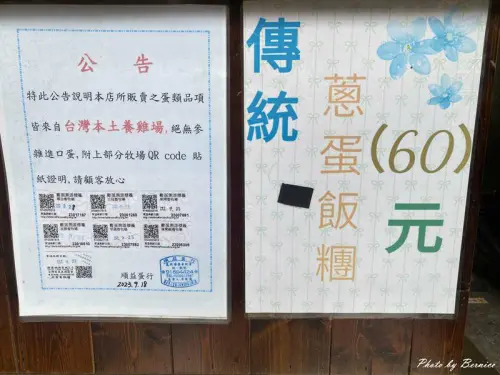 公告
特此公告說明本店所販賣之蛋類品項
皆來自台灣本土養雞場,絕無參
雜進口蛋,附上部分牧場QR code 貼
紙證明,請顧客放心
順益蛋行
2023.9.18
傳統
蔥蛋飯糰
(60)
元
Photo by Bernice